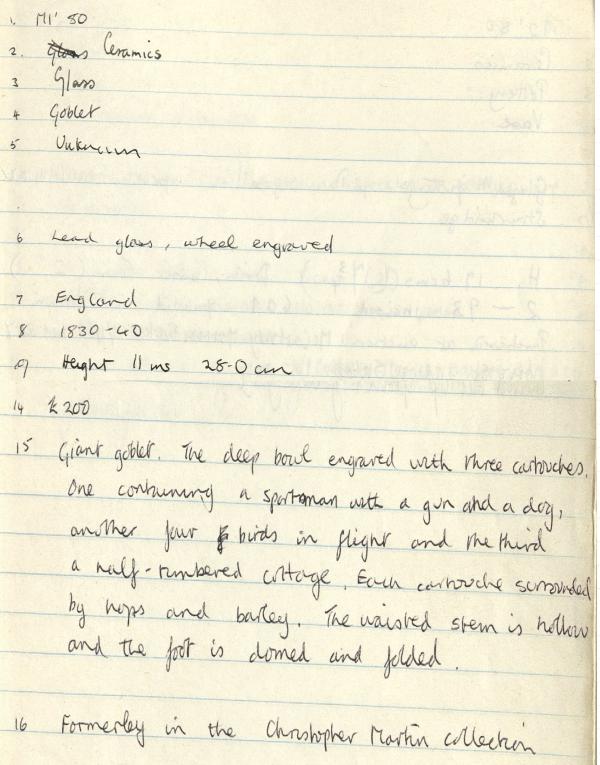 1. M1' 80
2. Glass Ceramics
3 Glass
4 Goblet
5 Unknown
6 Lead glass, wheel engraved
7 England
8 1830-40
9 Height 11 ins 28.0 cm
14 £200
15 Giant goblet. The deep bowl engraved with three cartouches.
One containing a sportsman with a gun and a dog,
another four birds in flight and the third
a half-timbered cottage. Each cartouche surrounded
by hops and barley. The waisted stem is hollow
and the foot is domed and folded.
16 Formerley in the Christopher Martin collection